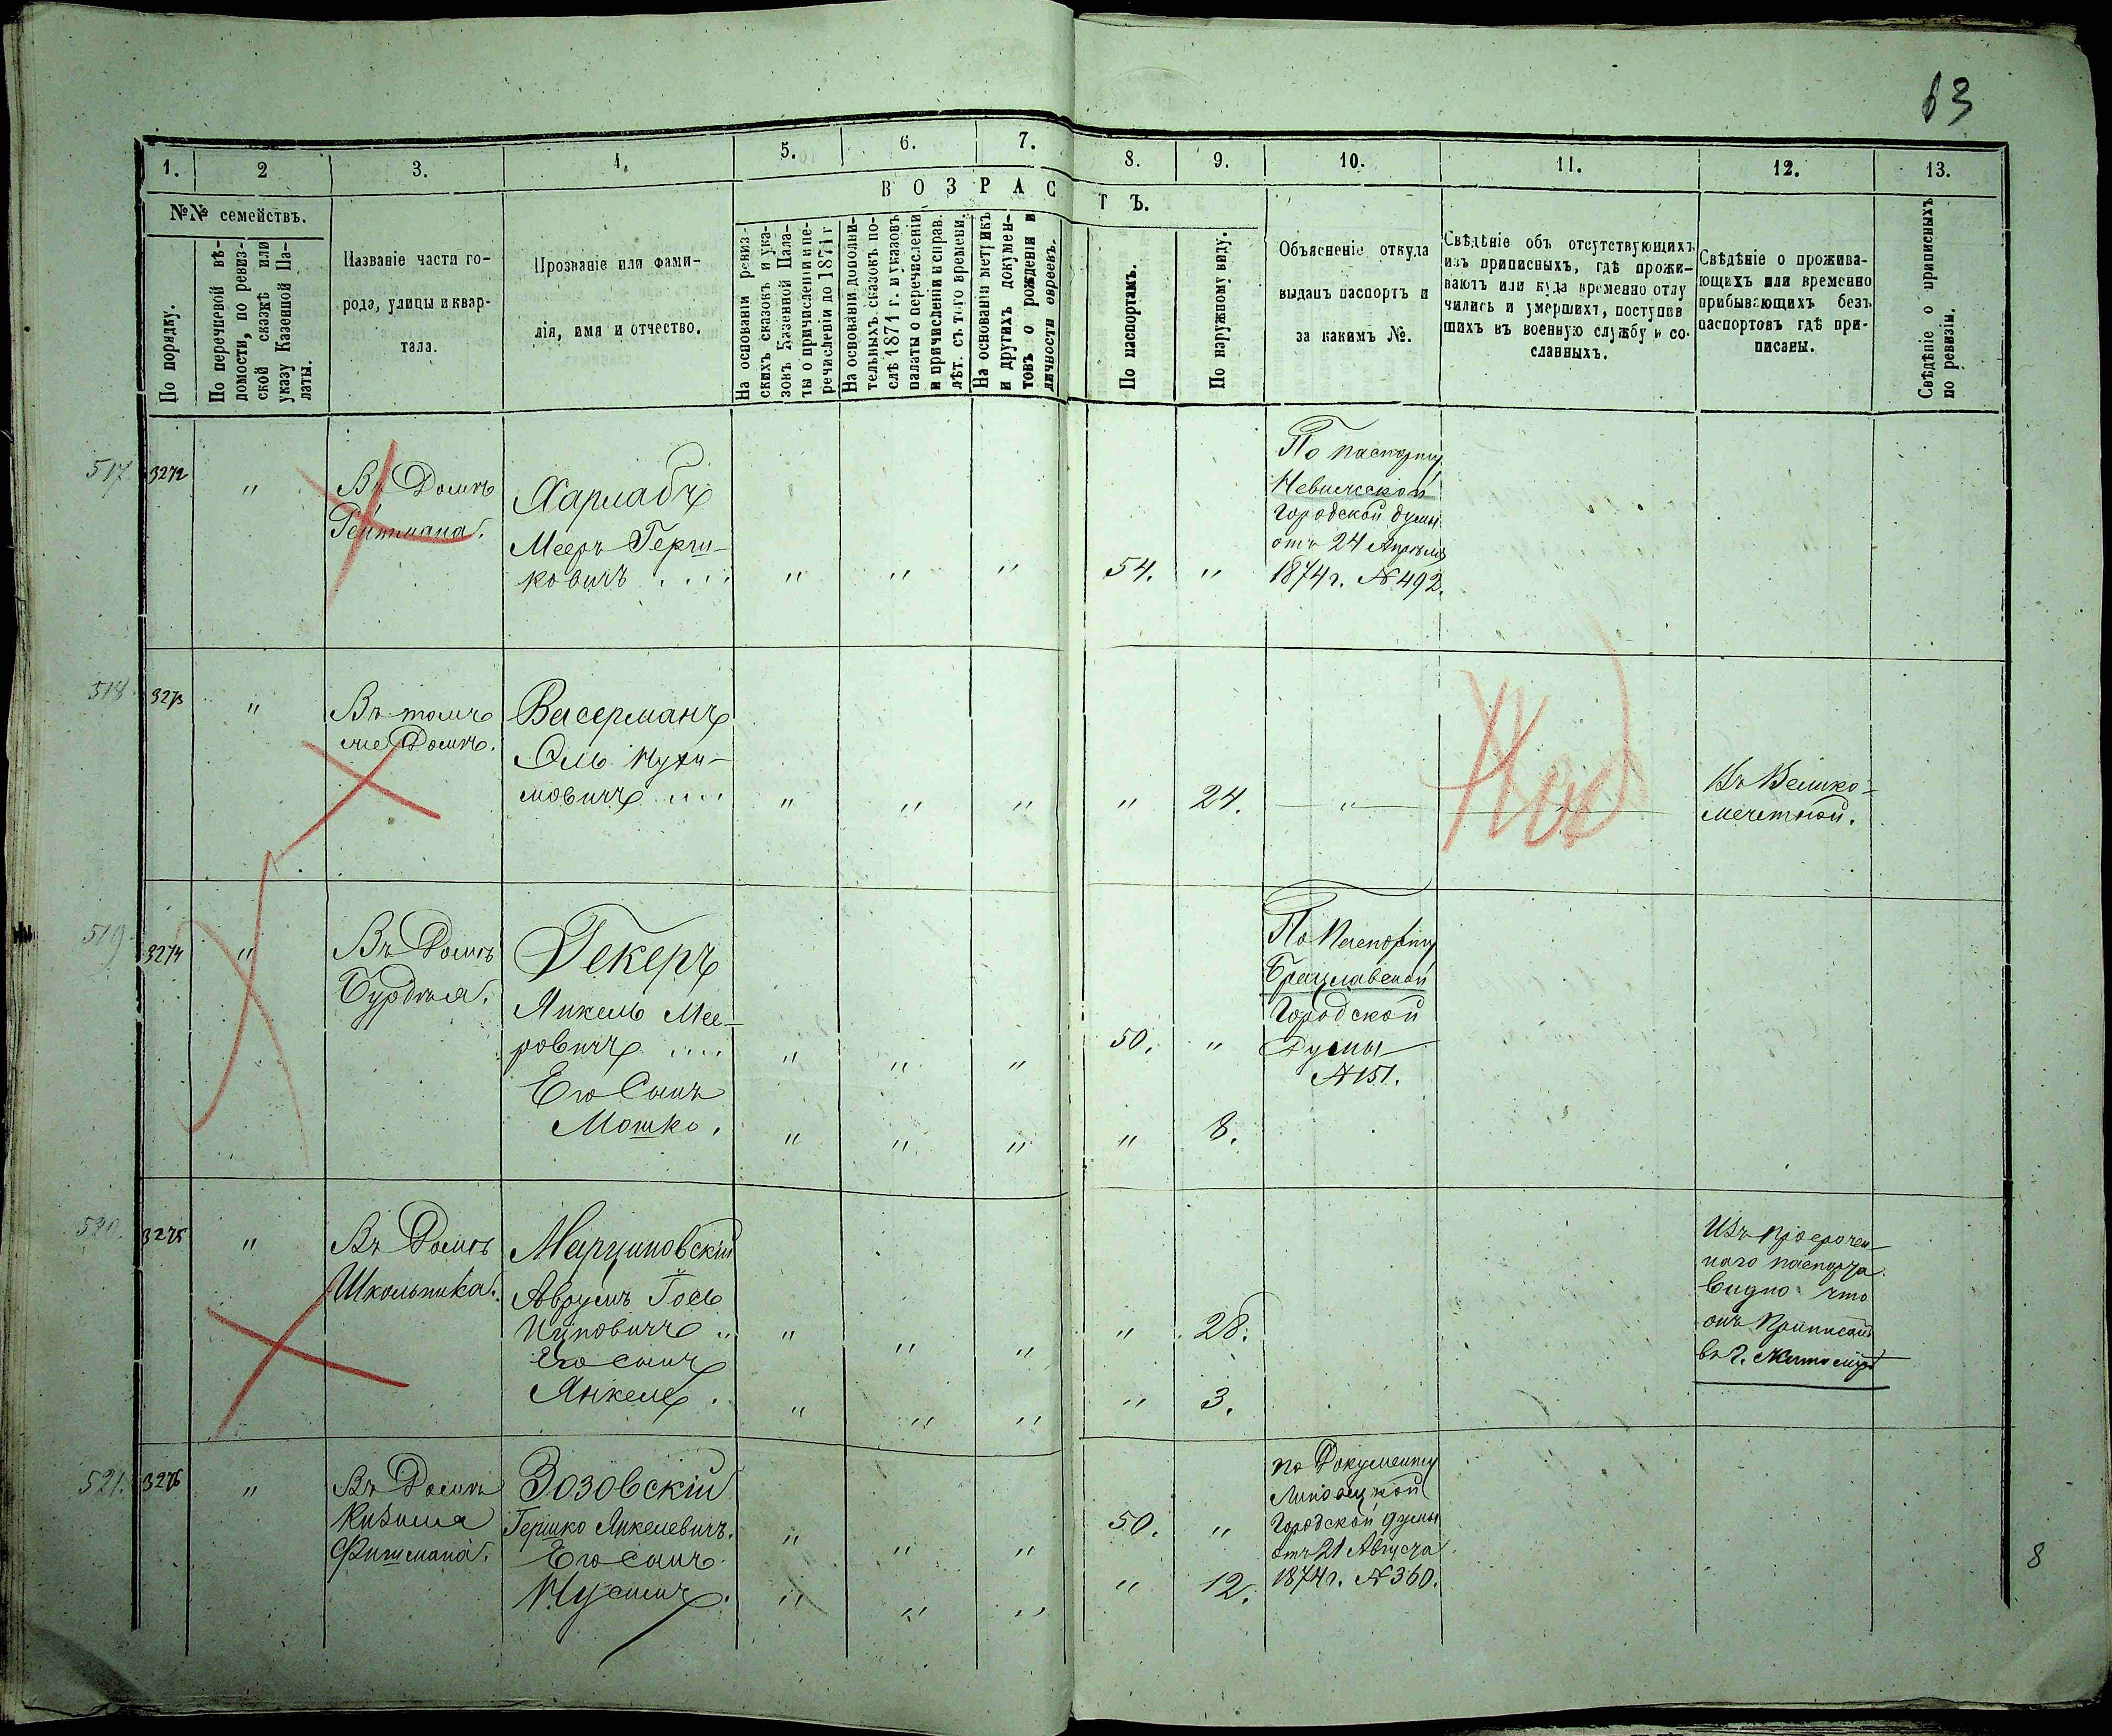 63
1. 2 3. 4. 5. 6. 7. 8. 9. 10. 11. 12. 13.
№№ семействъ.
По порядку.
По перечневой вѣ-
домости, по ревиз-
ской сказкѣ или
указу Казенной Па-
латы.
Названіе части го-
рода, улицы и квар-
тала.
Прозваніе или фами-
лія, имя и отчество.
ВОЗРАСТЪ.
На основаніи ревиз-
скихъ сказокъ и ука-
зовъ Казенной Пала-
ты о причисленіи и пе-
речисленіи до 1871 г
На основаніи дополни-
тельныхъ сказокъ по-
слѣ 1871 г. и указовъ
палаты о перечисленіи
и причисленіи и справ.
лѣт. съ того времени.
На основаніи метрикъ
и другихъ докумен-
товъ о рожденіи и
личности евреевъ.
По паспортамъ.
По наружному виду.
Объясненіе откуда
выданъ паспортъ и
за какимъ №.
Свѣдѣніе объ отсутствующихъ
изъ приписныхъ, гдѣ прожи-
ваютъ или куда временно отлу
чились и умершихъ, поступив
шихъ въ военную службу и со-
сланныхъ.
Свѣдѣніе о прожива-
ющихъ или временно
прибывающихъ безъ
паспортовъ гдѣ при-
писаны.
Свѣдѣніе о приписныхъ
по ревизіи.
517. 3272 "
Въ Домѣ
Гейтмана.
Харлабъ
Мееръ Герш-
ковичъ .... " " " 54. "
По паспорту
Городской думы
отъ 24 Апрѣля
1874 г. № 492.
518. 3273 "
Въ томъ
же Домѣ.
Васерманъ
Эль Нухи-
мовичъ .... " " " " 24. "
Въ Велико-
мечетной.
519. 3274 "
Въ Домѣ
Гекеръ
Янкель Мее-
ровичъ .... " " " 50. "
Его Сынъ
Мошко. " " " " 8.
По Паспорту
Брацлавской
Городской
Думы
№ 151.
520. 3275 "
Въ Домѣ
Школьника.
Марциновскій
Аврумъ Іось
" " " " 28.
Его сынъ
Янкель. " " " " 3.
Изъ просрочен-
наго паспорта
видно что
онъ приписанъ
въ г. Житомирѣ
521. 3276 "
Въ Домѣ
Фишмана.
Зозовскій
Гершко Янкелевичъ. " " " 50. "
Его сынъ
Нусимъ. " " " " 12.
По Документу
Липовецкой
Городской думы
отъ 21 Августа
1874 г. № 360.
8